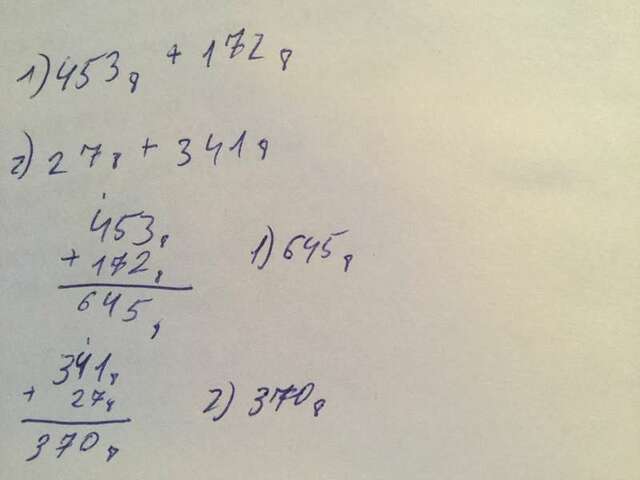 1) 453₈ + 172₈
2) 27₈ + 341₈
1
453₈
+ 172₈
645₈
1) 645₈
1
341₈
+ 27₈
370₈
2) 370₈